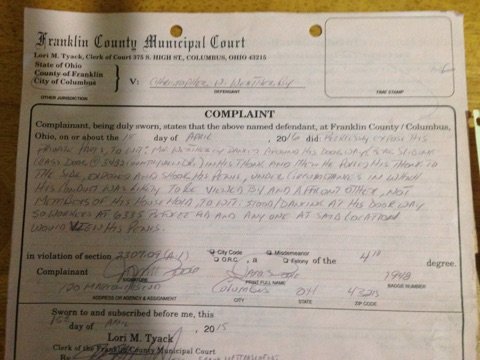 Franklin County Municipal Court
Lori M. Tyack, Clerk of Court 375 S. HIGH ST., COLUMBUS, OHIO 43215
State of Ohio
County of Franklin
City of Columbus
V:
DEFENDANT
OTHER JURISDICTION
TIME STAMP
COMPLAINT
Complainant, being duly sworn, states that the above named defendant, at Franklin County / Columbus,
Ohio, on or about the day of APRIL, 20 did: RECKLESSLY EXPOSE HIS
PRIVATE PARTS, TO WIT: MR DANCED AROUND HIS DOORWAY
IN HIS THONG AND THEN HE HIS THONG TO
THE SIDE, EXPOSED AND SHOOK HIS PENIS, UNDER CIRCUMSTANCES IN WHICH
HIS CONDUCT WAS LIKELY TO BE VIEWED BY AND AFFRONT OTHER, NOT
MEMBERS OF HIS HOUSE HOLD TO WIT: STOOD/DANCING AT HIS DOOR WAY
SO WORKERS AT 6335 RD AND ANY ONE AT SAID LOCATION
WOULD VIEW HIS PENIS.
in violation of section 2307.09(A)(1) City Code O.R.C. a Misdemeanor Felony of the 4TH degree.
Complainant
SIGNATURE PRINT FULL NAME BADGE NUMBER
120 MARCONI BLVD COLUMBUS OH 43215
ADDRESS OR AGENCY & ASSIGNMENT CITY STATE ZIP CODE
Sworn to and subscribed before me, this
day of , 2015
Lori M. Tyack
Clerk of the Franklin County Municipal Court